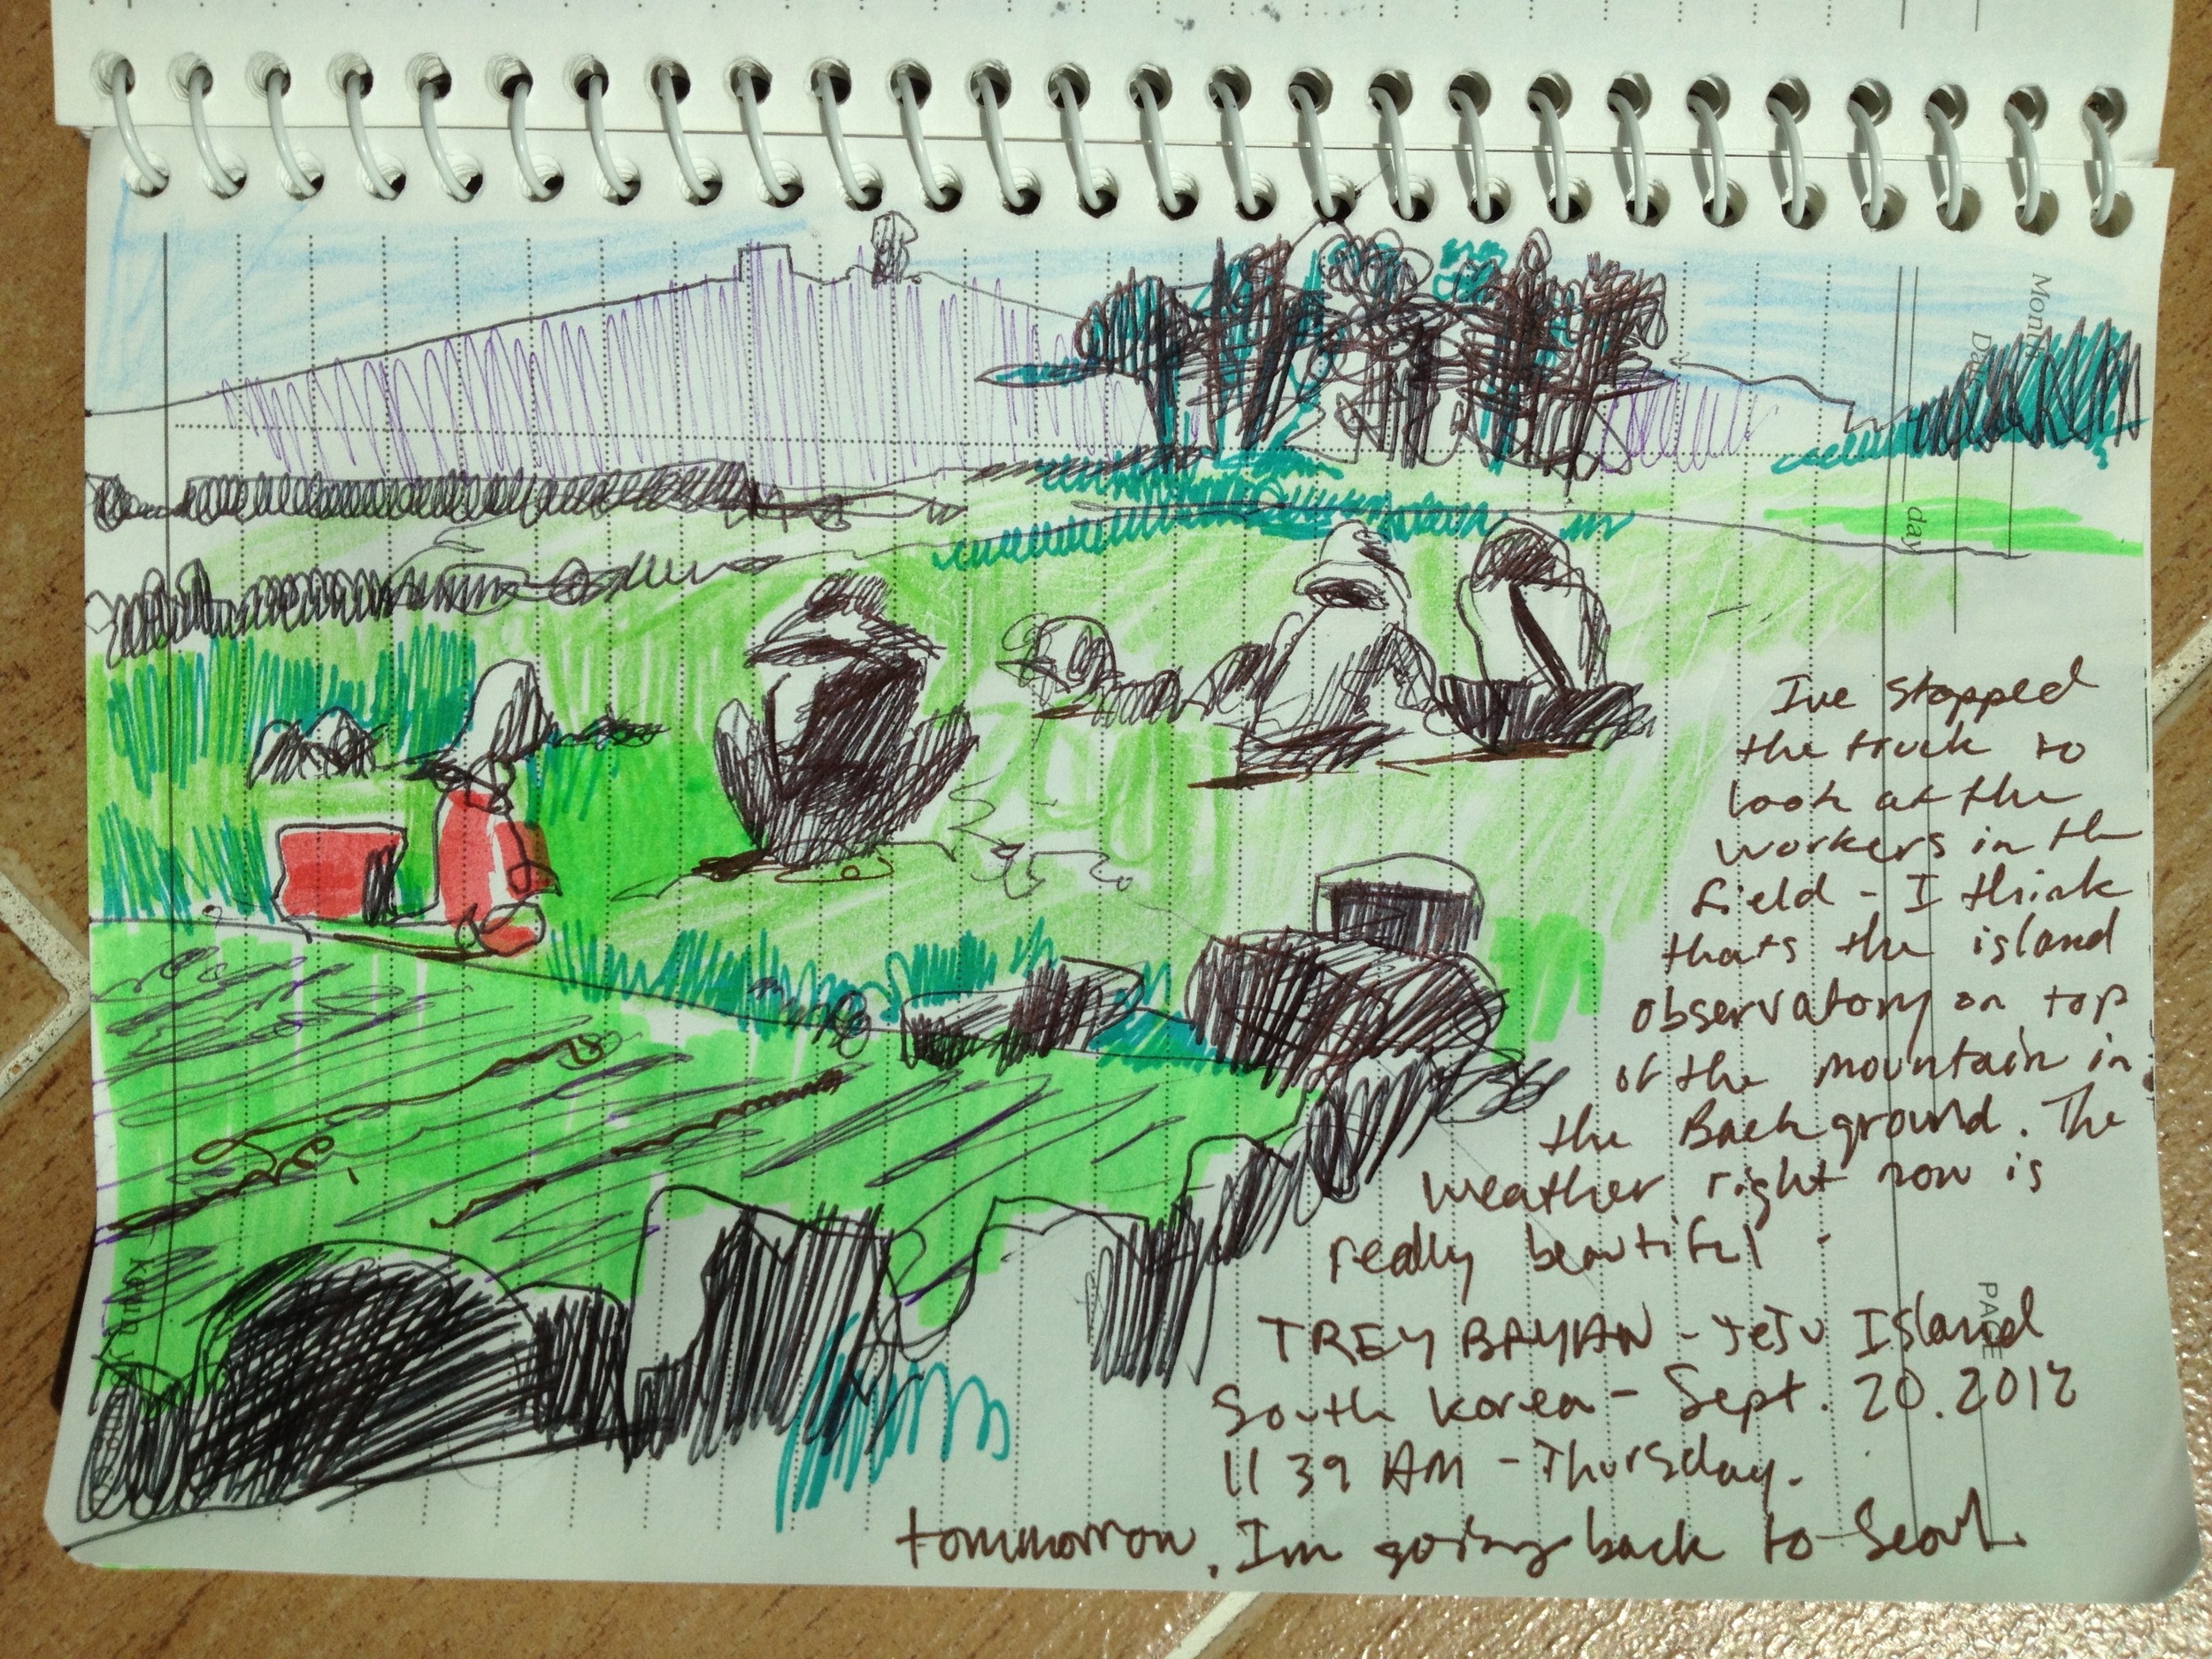 Month
Day
day
I've stopped
the truck to
look at the
workers in th
field - I think
thats the island
observatory on top
of the mountain in
the Background. The
weather right now is
really beautiful -
TREY BAYIAN - JeJu Island
PAGE
South Korea - Sept. 20.2012
11 39 AM - Thursday.
tommorrow, Im going back to Seoul.